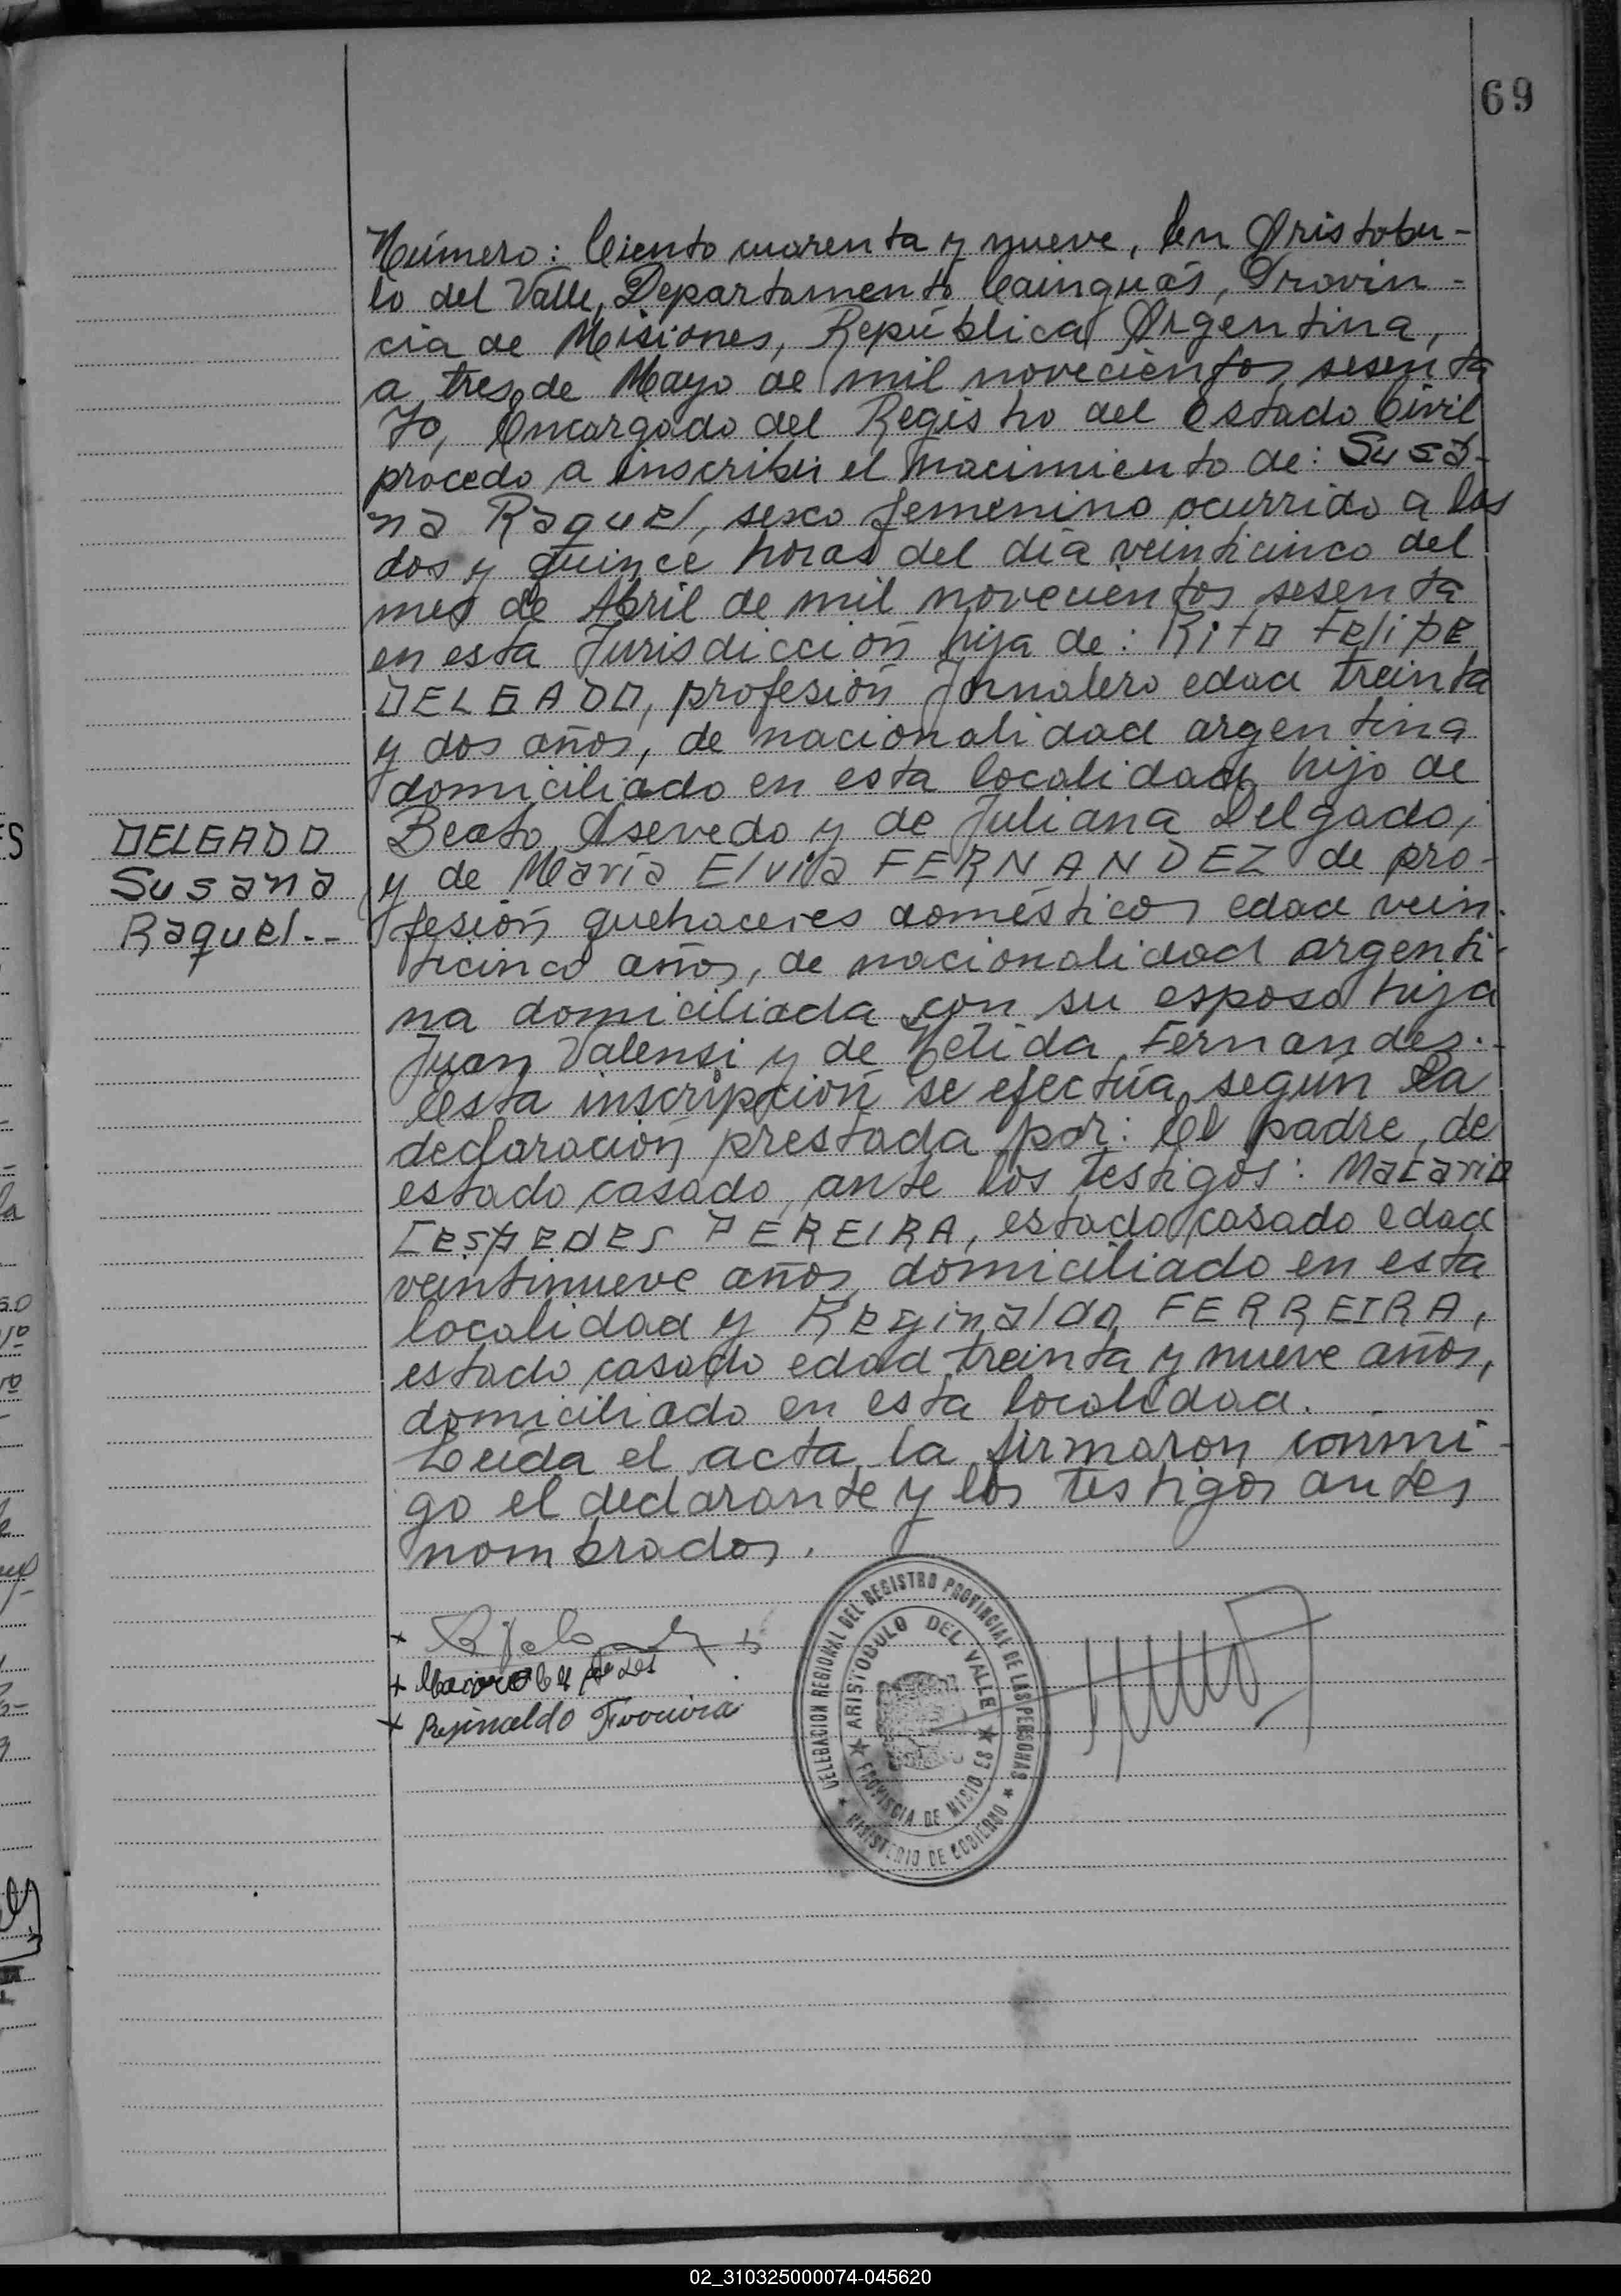 69
Número: Ciento cuarenta y nueve, En Aristobu-
lo del Valle, Departamento Cainguás, Provin-
cia de Misiones, República Argentina,
a tres de Mayo de mil novecientos sesenta
Yo, Encargado del Registro del Estado Civil
procedo a inscribir el nacimiento de: Susa-
na Raquel, sexo femenino ocurrido a las
dos y quince horas del día veinticinco del
mes de Abril de mil novecientos sesenta
en esta Jurisdicción hija de: Rito Felipe
DELGADO, profesión Jornalero edad treinta
y dos años, de nacionalidad argentina
domiciliado en esta localidad hijo de
Beato Asevedo y de Juliana Delgado,
y de María Elvia FERNANDEZ de pro-
fesión quehaceres domésticos edad vein-
ticinco años, de nacionalidad argenti-
na domiciliada con su esposo hija
Juan Valensi y de Fernandes.-
Esta inscripción se efectúa según la
declaración prestada por: El padre, de
estado casado, ante los testigos: Macario
Cespedes PEREIRA, estado casado edad
veintinueve años domiciliado en esta
localidad y Reginaldo FERREIRA,
estado casado edad treinta y nueve años,
domiciliado en esta localidad.
Leída el acta la firmaron conmi-
go el declarante y los testigos antes
nombrados.
DELGADO
Susana
Raquel.--
Rejinaldo Ferreira
DELEGACION REGIONAL DEL REGISTRO PROVINCIAL DE LAS PERSONAS
★ MINISTERIO DE GOBIERNO ★
ARISTOBULO DEL VALLE
★ PROVINCIA DE MISIONES ★
02_310325000074-045620